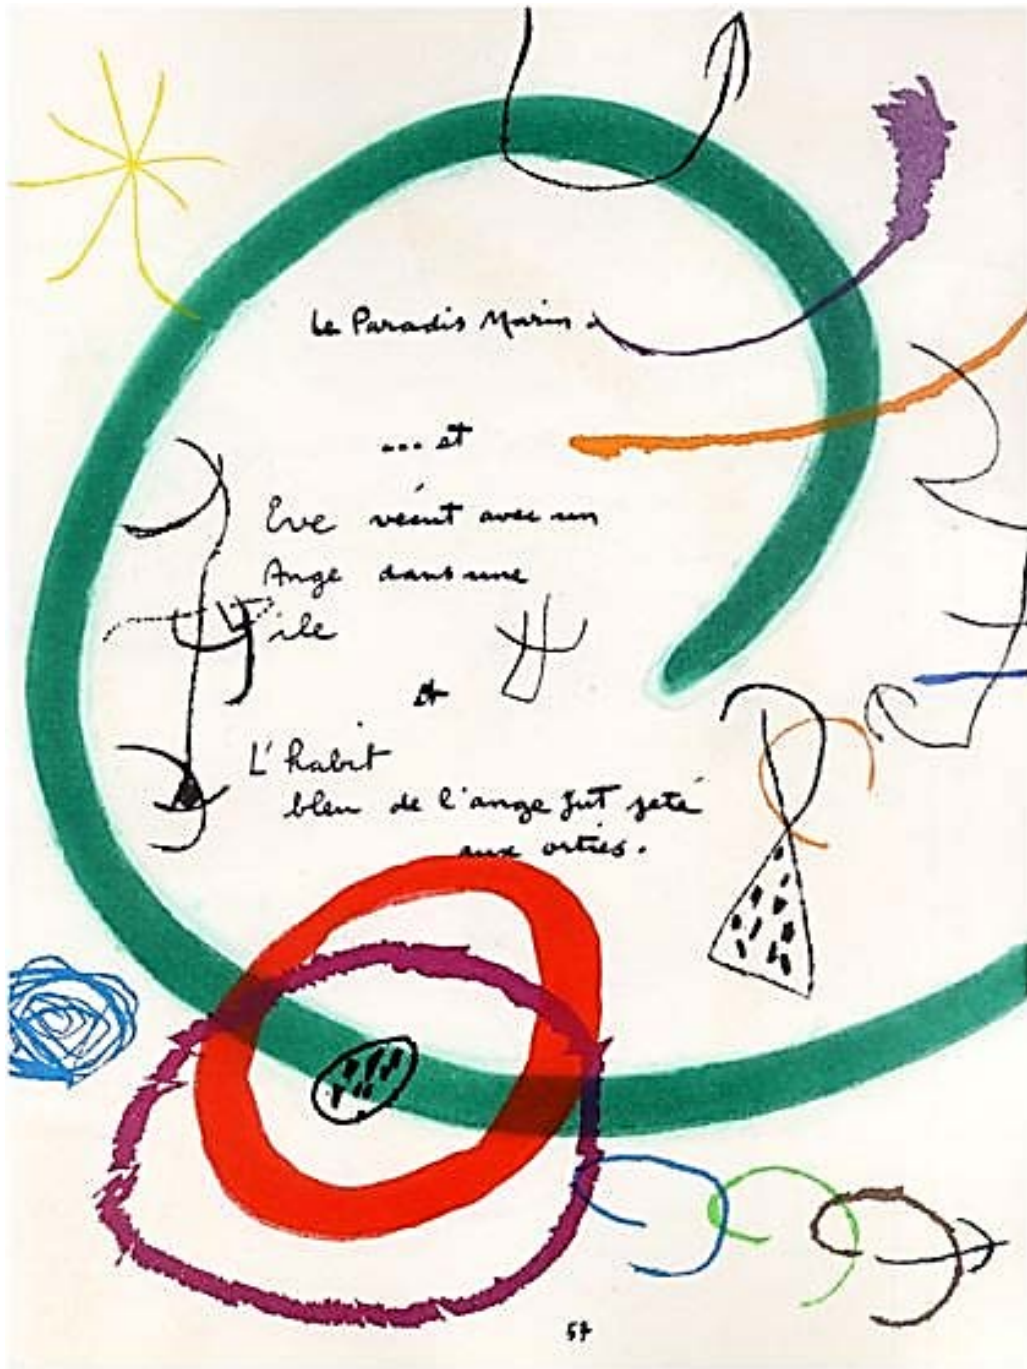 Le Paradis Marin.
... et
Eve vécut avec un
Ange dans une
ile
et
L'habit
bleu de l'ange fut jeté
aux orties.
57